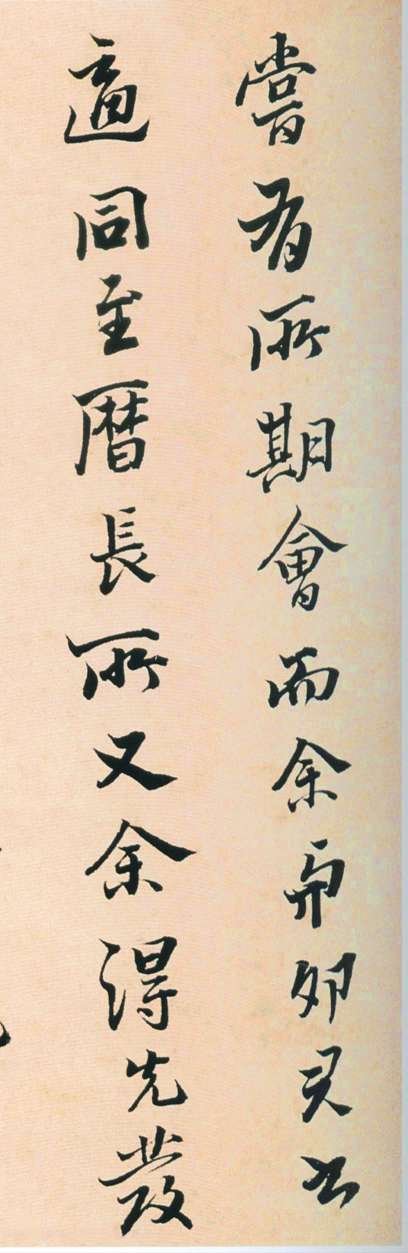 嘗有所期會而余與卯君公
適同至曆長所又余得先發